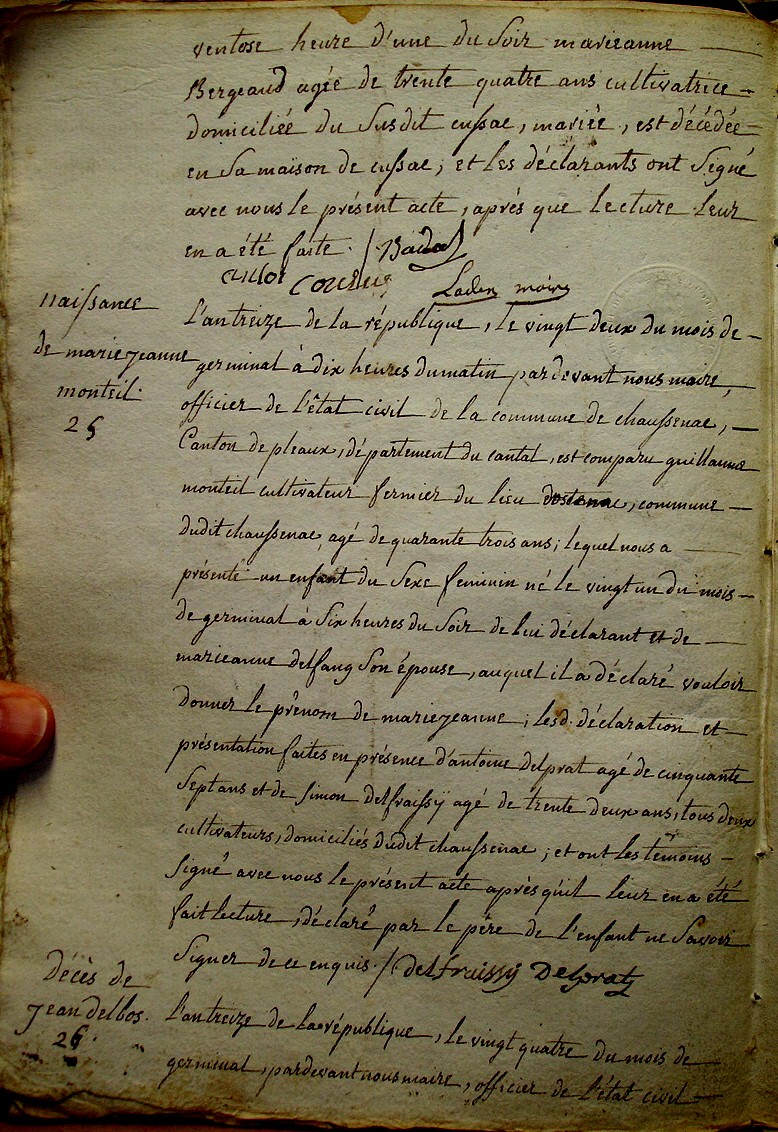 ventose heure d'une du soir marieanne
Bergeaud agée de trente quatre ans cultivatrice
domiciliée du susdit cussac, mariée, est décédée
en sa maison de cussac; et les déclarants ont signé
avec nous le présent acte, après que lecture leur
en a été faite.
naissance
de marie jeanne
monteil.
25
l'an treize de la république, le vingt deux du mois de
germinal à dix heures du matin pardevant nous maire,
officier de l'état civil de la commune de chaussenac,
Canton de pleaux, département du cantal, est comparu guillaume
monteil cultivateur fermier du lieu commune
dudit chaussenac, agé de quarante trois ans; lequel nous a
présenté un enfant du sexe feminin né le vingt un du mois
de germinal à six heures du soir de lui déclarant et de
marieanne delfang son épouse, auquel il a déclaré vouloir
donner le prénom de marie jeanne; lesd. déclaration et
présentation faites en présence d'antoine delprat agé de cinquante
sept ans et de simon delfraissÿ agé de trente deux ans, tous deux
cultivateurs, domiciliés dudit chaussenac; et ont les témoins
signé avec nous le présent acte après qu'il leur en a été
fait lecture, déclaré par le père de l'enfant ne savoir
signer de ce enquis. / delfraissy Delprat
Décès de
jean delbos.
26.
l'an treize de la république, le vingt quatre du mois de
germinal, pardevant nous maire, officier de l'état civil